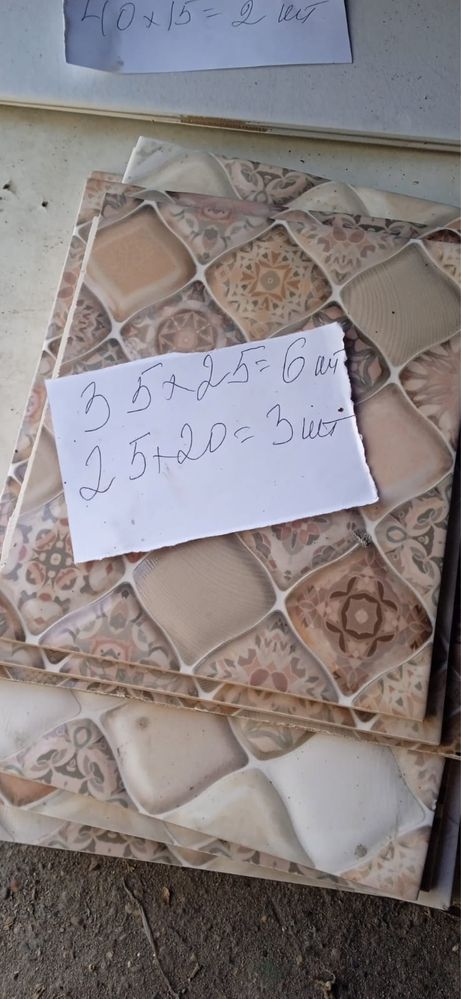 40×15=2 шт
35×25=6 шт
25×20=3 шт